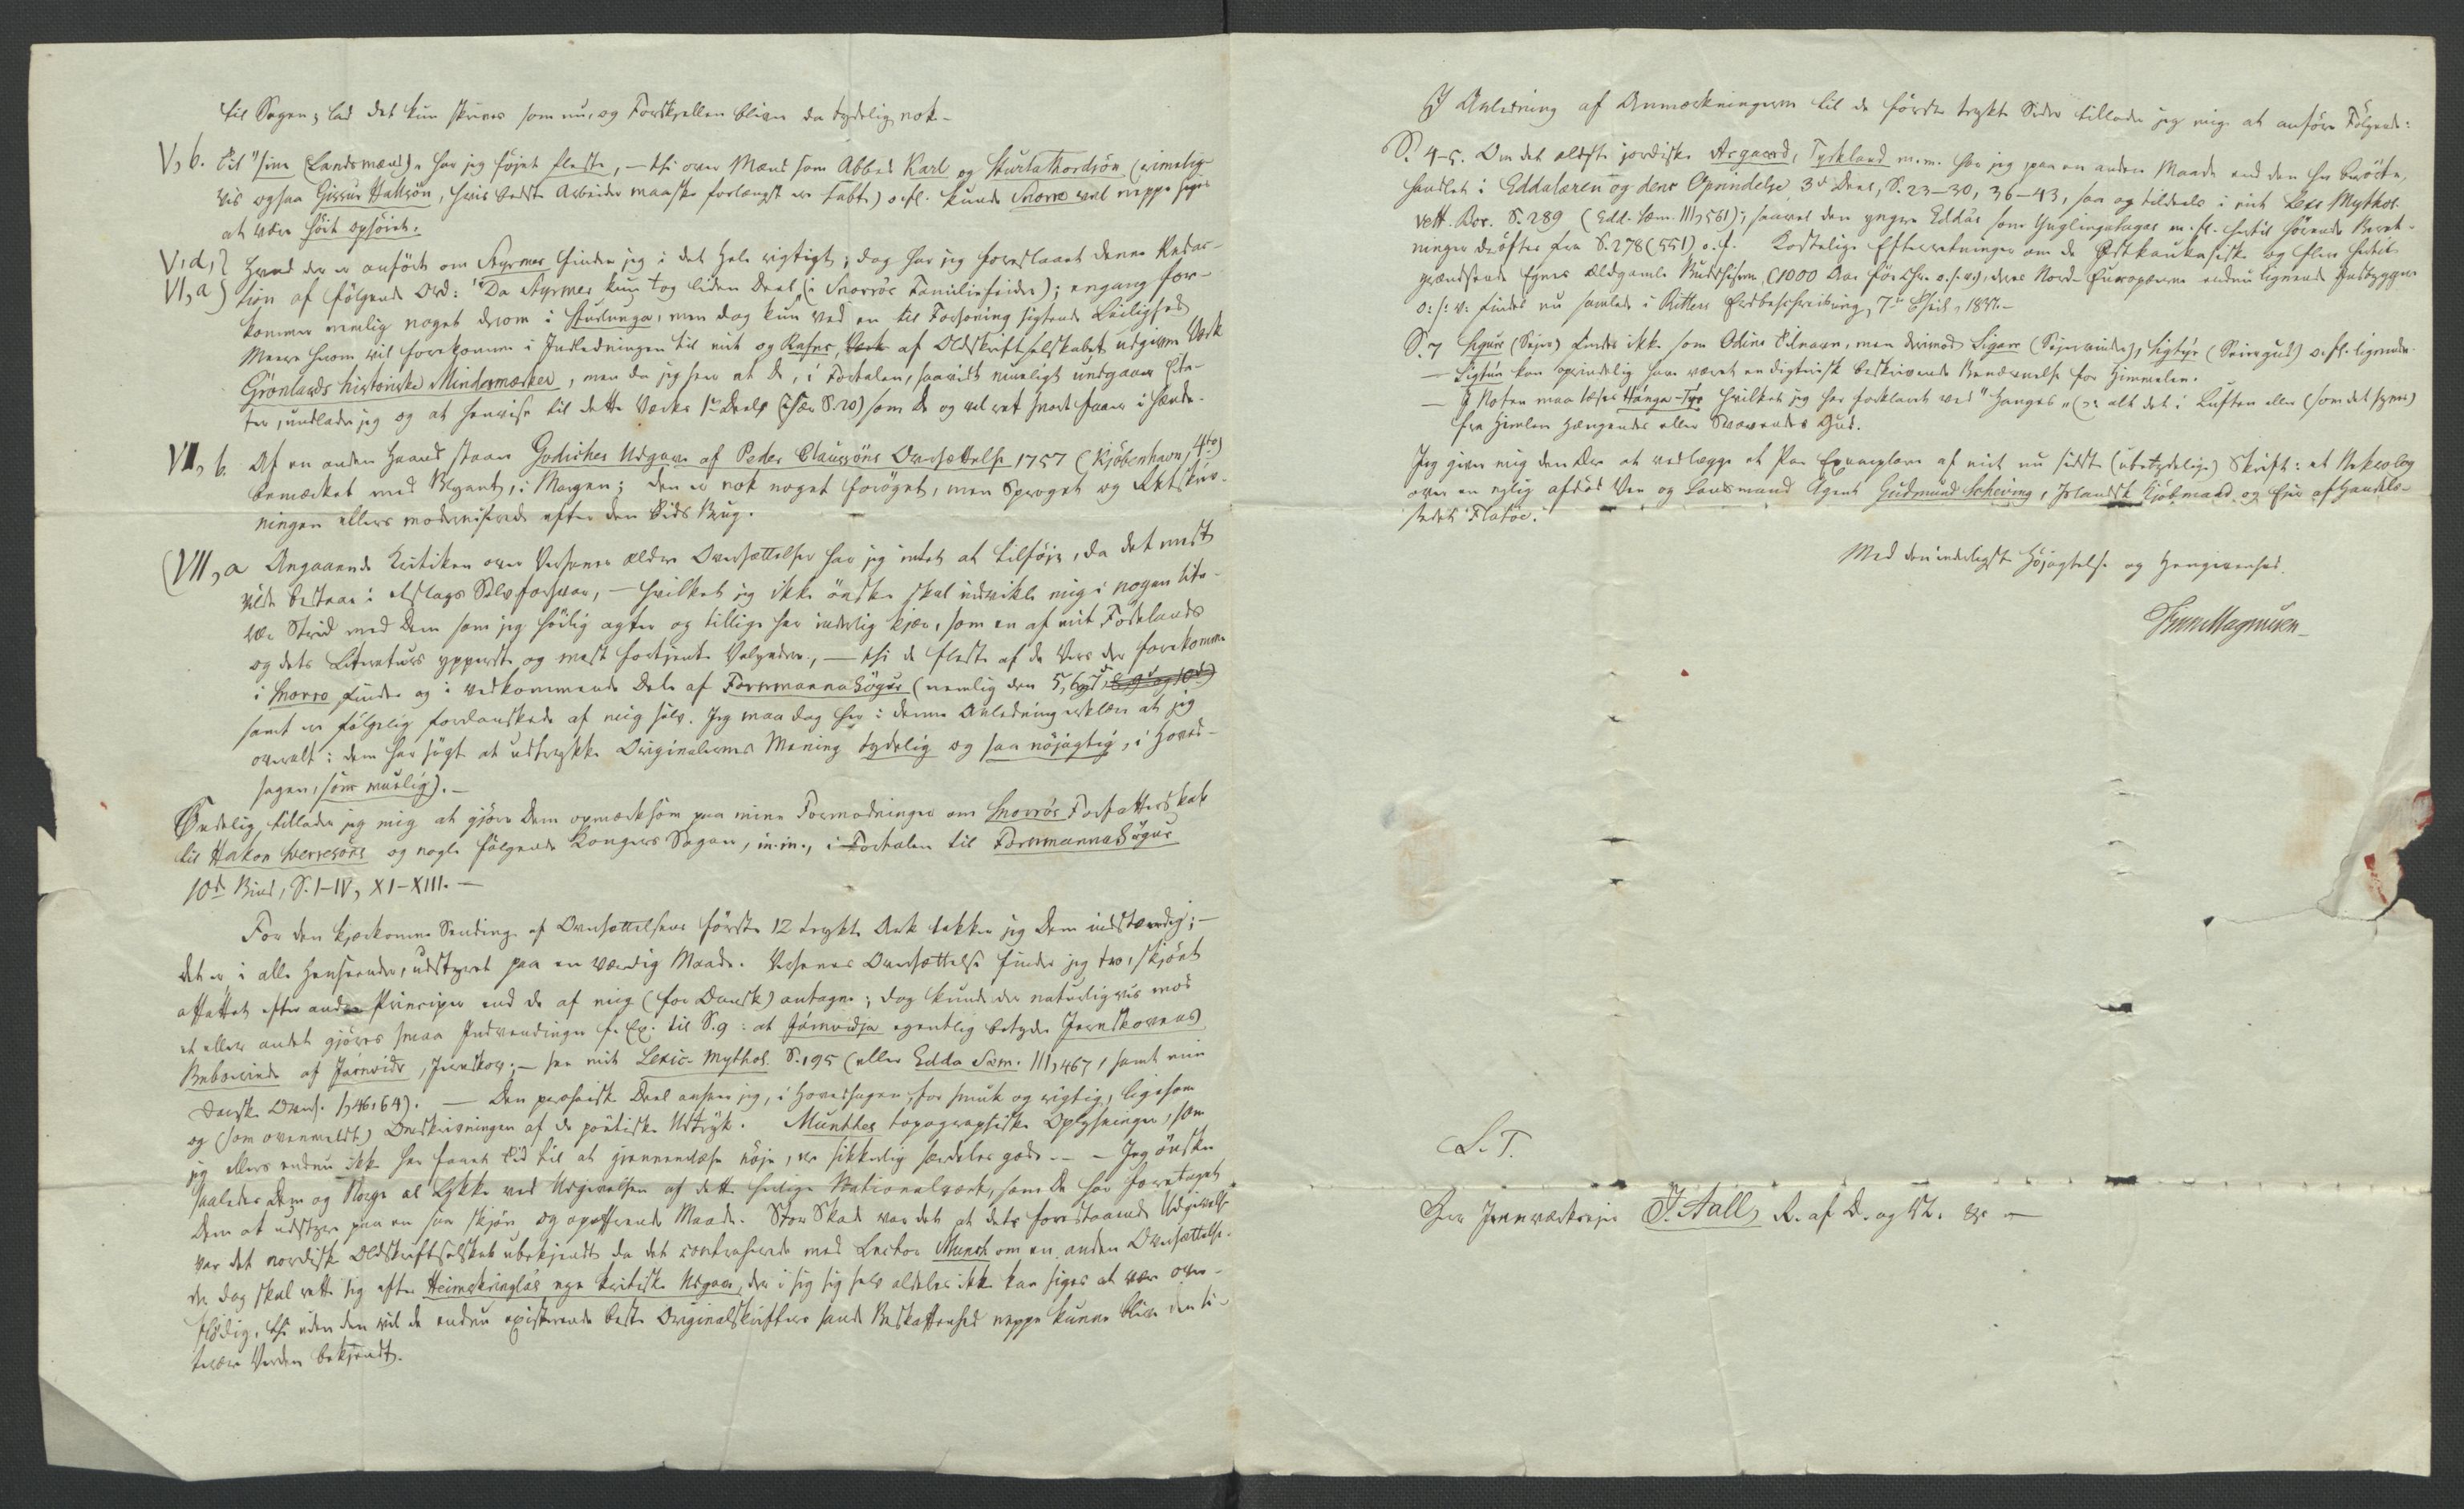 til Sagen; lad det kun skrives som nu, og Forskjellen bliver da tydelig nok.
V, b. til "sine (Landsmænd)" har jeg føjet fleste, – thi over Mænd som Abbed Karl og Sturla Thordsön (rimelig-
vis ogsaa Gissur Hallsön, hvis bedste Arbeider maaske forlængst ere tabte) o. fl. kunde Snorro vel neppe siges
at være höit ophöiet.
V, d, }
VI, a } Hvad der er anfört om Styrmer finder jeg i det Hele rigtigt; dog har jeg foreslaaet denne Redac-
tion af følgende Ord: "Da Styrmer kun tog liden Deel (i Snorrös Familiefeider); engang fore-
kommer nemlig noget derom i Sturlunga, men dog kun ved en til Forsoning sigtende Leilighed
Meere herom vil forekomme i Indledningen til mit og Rafns, af Oldskriftselskabet udgivne Værk
Grönlands historiske Mindesmærker, men da jeg seer at De, i Fortalen, saavidt mueligt undgaaer Cita-
ter, undlader jeg og at henvise til dette Værks 1ste Deel (især S. 20) som De og vel ret snart faaer i Hænde.
VII, b. Af en anden Haand staaer Godiches Udgave af Peder Claussöns Oversættelse 1757 (Kjöbenhavn, 4to)
bemærket med Blyant, i Margen; den er nok noget forøget, men Sproget og Retskriv-
ningen ellers moderniserede efter den Tids Brug.
(VII, a Angaaende Kritiken over Versenes ældre Oversættelser har jeg intet at tilföje, da det mest
vilde bestaae i etslags Selvforsvar, – hvilket jeg ikke önsker skal indvikle mig i nogen lite-
rær Strid med Dem som jeg höilig agter og tillige har inderlig kjær, som en af mit Fødelands
og dets Literaturs ypperste og mest fortjente Velyndere, – thi de fleste af de Vers der forekomme
i Snorro findes og i vedkommende Dele af Fornmanna Sögur (nemlig den 5, 6 og 7d
samt er følgelig fordanskede af mig selv. Jeg maa dog her i denne Anledning erklære at jeg
overalt i dem har søgt at udtrykke Originalernes Mening tydelig og saa nöjagtig, i Hoved-
sagen, som muelig). –
Endelig tillader jeg mig at gjöre Dem opmærksom paa mine Formodninger om Snorrós Forfatterskab
til Hakon Sverresöns og nogle følgende Kongers Sagaer, m.m., i Fortalen til Fornmanna Sögur
10de Bind, S. I-IV, XI-XIII. –
For den kjærkomne Sending af Oversættelsens förste 12 trykte Ark takker jeg Dem indstændig; –
det er, i alle Henseender, udstyret paa en værdig Maade. Versenes Oversættelse finder jeg tro, skjönt
affattet efter andre Principer end de af mig (for Dansk) antagne; dog kunde der naturligvis mod
et eller andet gjöres smaa Indvendinger f. Ex. til S. 9: at Járnvidja egentlig betyder Jernskovens
Beboerinde af Járnvidr, Jernskov; – see mit Lexic. Mythol. S. 195 (eller Edda Sæm. III, 467, samt min
danske Overs. I, 46, 64). – Den prosaiske Deel anseer jeg, i Hovedsagen, for smuk og rigtig, ligesom
og (som ovenmeldt) Omskrivningen af de poëtiske Udtryk. Munthes topographiske Oplysninger, som
jeg ellers endnu ikke har faaet Tid til at gjennemlæse nöje, ere sikkerlig særdeles gode. – Jeg önsker
saaledes Dem og Norge al Lykke ved Udgivelsen af dette herlige Nationalværk, som De har foretaget
Dem at udstyre paa en saa skjön og opoffrende Maade. Stor Skade var det at dets forestaaende Udgivelse
var det nordiske Oldskriftselskab ubekjendt da det contraherede med Lector Munch om en anden Oversættelse.
der dog skal rette sig efter Heimskringlás nye kritiske Udgave, der i sig sig selv aldeles ikke kan siges at være over-
flödig, thi uden den vil de endnu existerende bedste Originalskrifters sande Beskaffenhed neppe kunne blive den li-
terære Verden bekjendt.
I Anledning af Anmærkningerne til de förste trykte Sider tillader jeg mig at anföre Følgende:
S. 4-5. Om det ældste jordiske Asgaard, Tyrkland m.m. har jeg paa en anden Maade end den her berörte,
handlet i Eddalæren og dens Oprindelse 3de Deel, S. 23-30, 36-43, saa og tildeels i mit Lex. Mythol.
vett. Bor. S. 289 (Edd. Sæm. III, 561); saavel den yngre Eddas som Ynglingasagas m. fl. hertil hörende Beret-
ninger dröftes fra S. 278 (551) o. f. Kostelige Efterretninger om de Östkaukasiske og flere hertil
grændsende Egnes ældgamle Buddhisme, (1000 Aar för Chr. o. s. v.), deres Nord-Europæerne endnu lignende Indbyggere
o: s: v: findes nu samlede i Ritters Erdbeschreibung, 7de Theil, 1837. –
S. 7 Sigur (Sejer) findes ikke som Odins Tilnavn, men derimod Sigarr (Sejervinder), Sigtýr (Seiregud) o. fl. lignende.
– Sigtun kan oprindelig have været en digterisk beskrivende Benævnelse for Himmelen.
– I Noten maa læses Hánga-Týr hvilket jeg har forklaret ved "Hanges" (ɔ: alt det i Luften eller (som det synes)
fra Himlen hængendes eller svævendes Gud.
Jeg giver mig den Ære at vedlægge et Par Exemplarer af mit nu sidste (ubetydelige) Skrift: et Nekrolog
over en nylig afdöd Ven og Landsmand Agent Gudmund Scheving, Islandsk Kjöbmand og Ejer af Handels-
stedet Flatöe.
Med den inderligste Højagtelse og Hengivenhed.
Finn Magnusen
S. T.
Herr Jernværkseier J. Aall, R. af D. og N. &c –